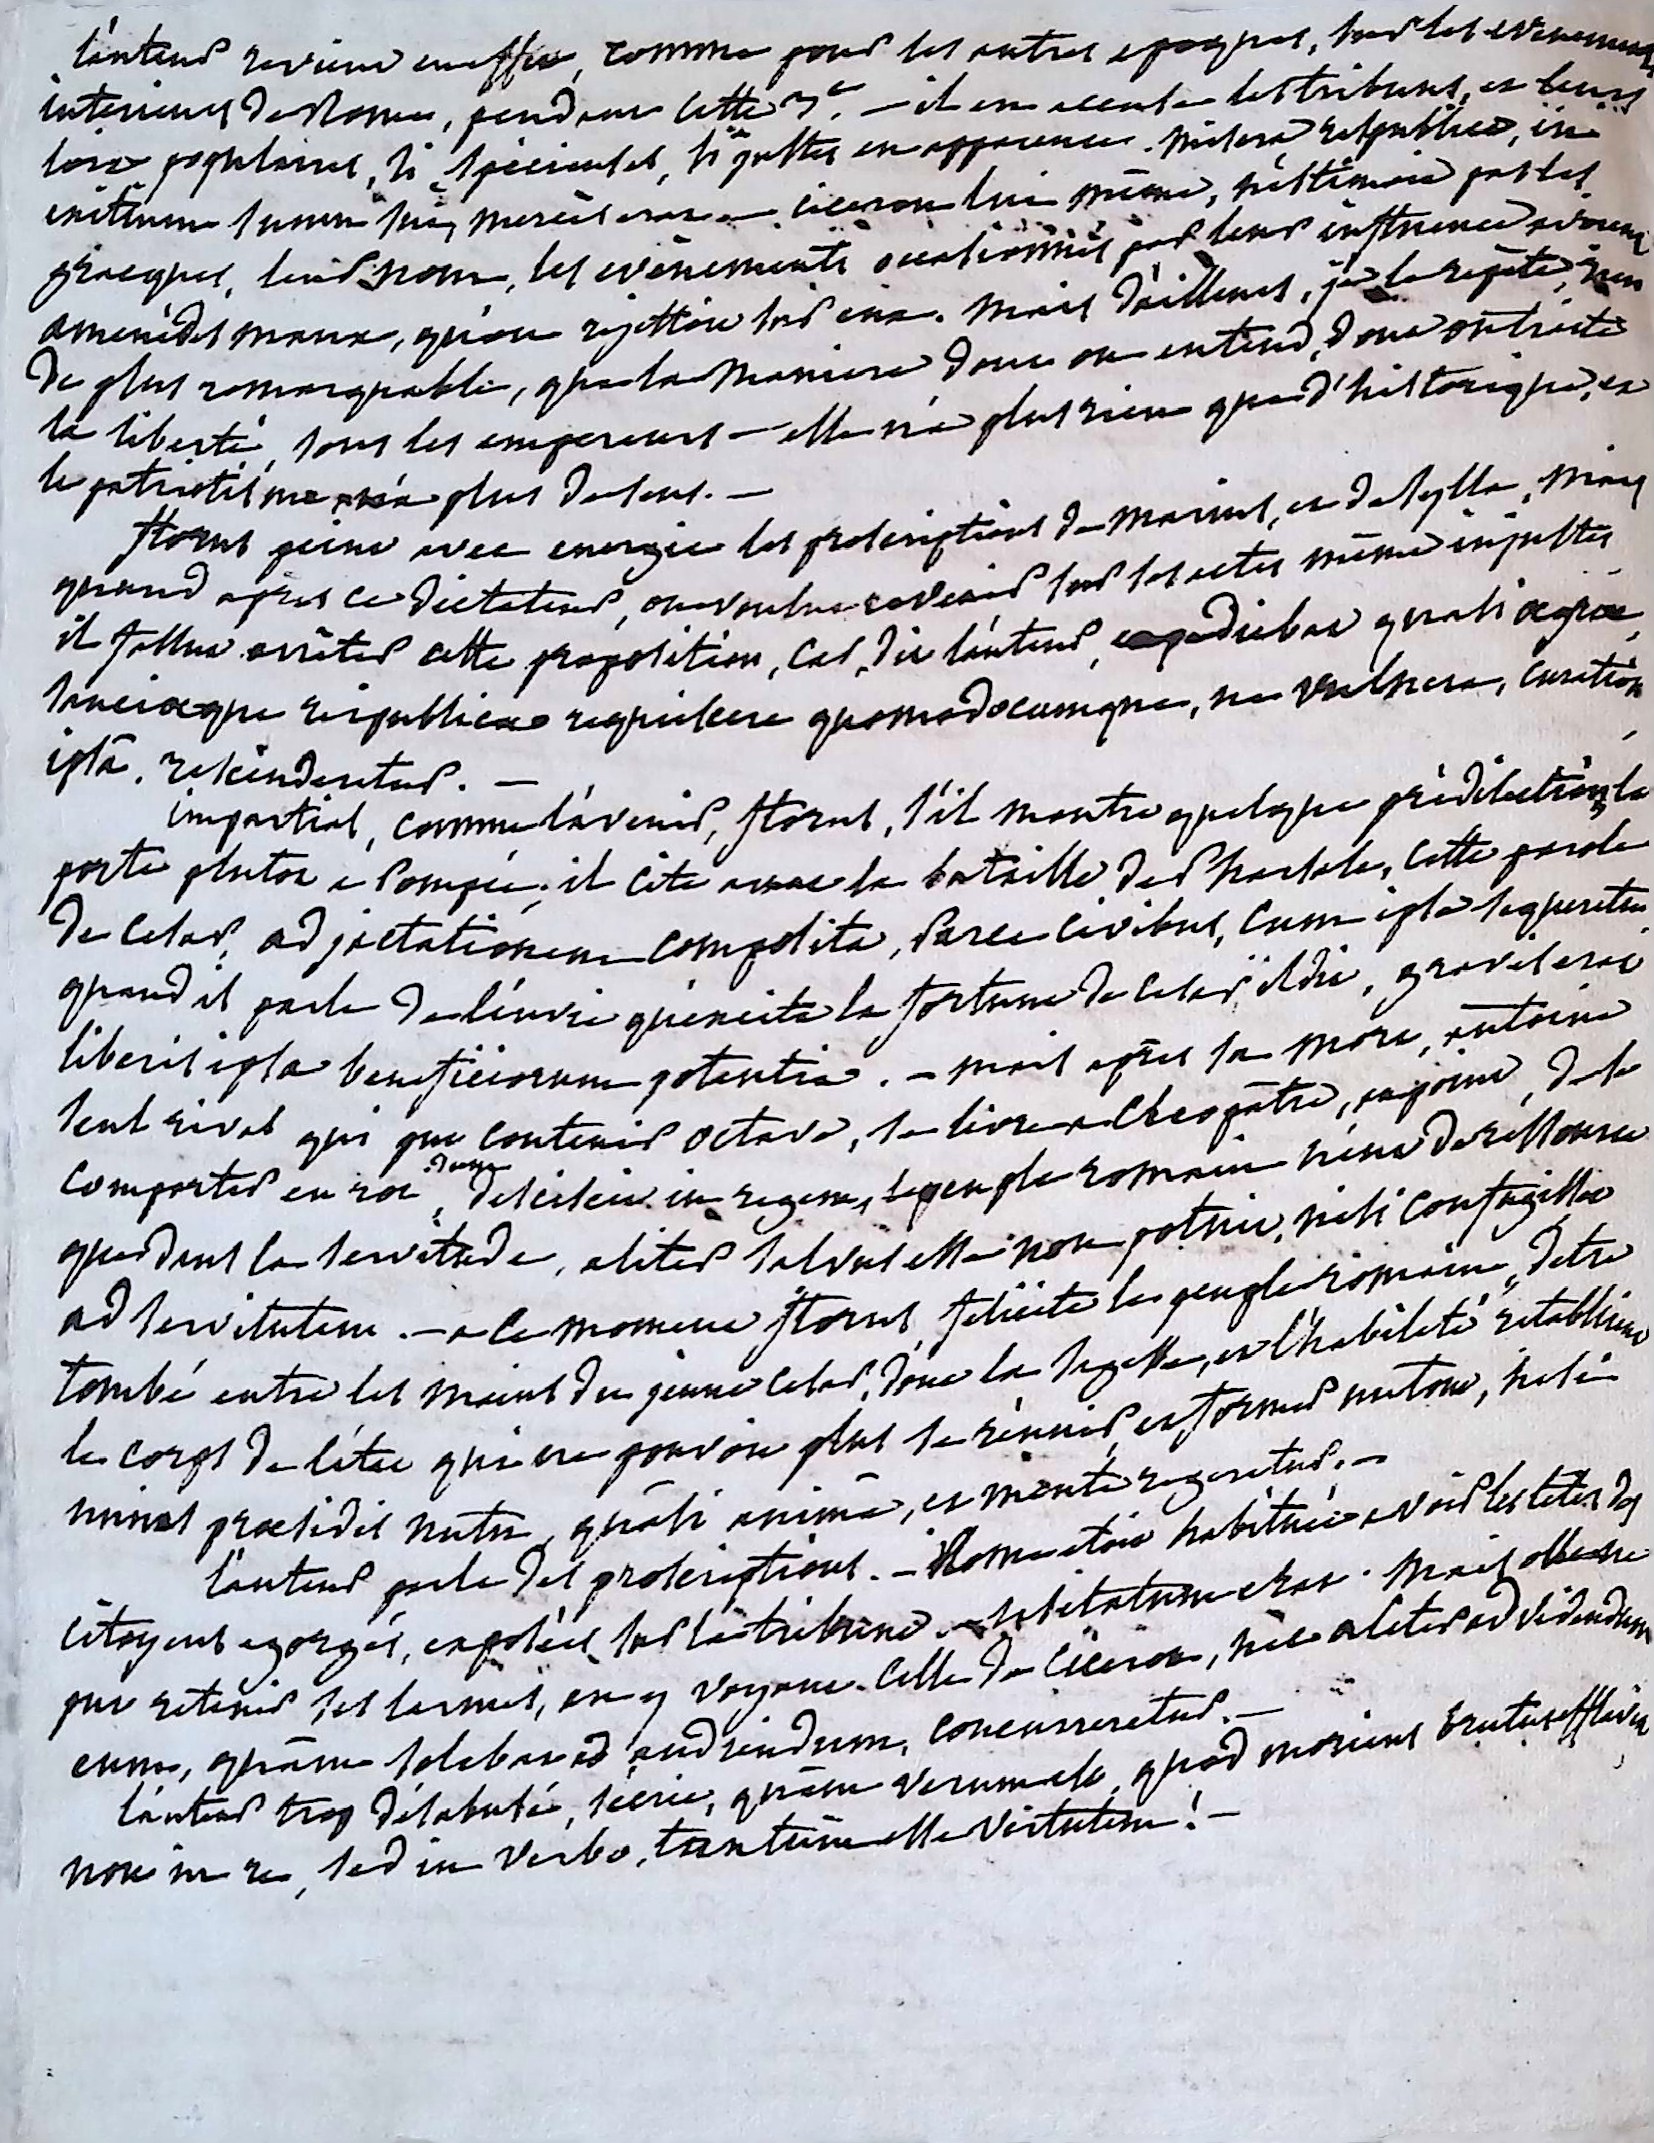 l'auteur revient en effet, comme pour les autres epoques, sur les evenements
interieurs de Rome, pendant cette 3e. — il en accuse les tribuns, et leurs
loix populaires, si specieuses, si justes en apparence. misera respublica, in
exitium suum sui merces erat — ciceron lui même, n'estimoit pas les
gracques, leur nom, les evènements occasionnés par leur influence avoient
amené des maux, qu'on rejettoit sur eux. mais d'ailleurs, je le repète, rien
de plus remarquable, que la maniere dont on entend, dont on traite
la liberté, sous les empereurs — elle n'a plus rien que d'historique, et
le patriotisme n'a plus de sens. —
florus peint avec energie les proscriptions de marius, et de sylla, mais
quand après ce dictateur, on voulut revenir sur les actes même injustes
il fallut arrêter cette proposition, car, dit l'auteur, expediebat quasi aegrae
sauciaeque reipublicae requiescere quomodocumque, ne vulnera, curatione
ipsâ, rescinderetur. —
impartial, comme l'avenir, florus, s'il montre quelque prédilection, la
porte plutot a Pompée; il cite avec la bataille de Pharsale, cette parole
de Cesar, ad jactationem composita, Parce civibus, cum ipse sequeretur
quand il parle de l'envie qu'excita la fortune de Cesar, il dit, gravis erat
liberis ipsa beneficiorum potentia. — mais après sa mort, antoine
seul rival qui put contenir octave, se livre a Cleopâtre, au point, de se
comporter en roi, dum desciscit in regem, le peuple romain n'eut de ressource
que dans la servitude, aliter salvus esse non potuit, nisi confugisset
ad servitutem. — a ce moment florus, felicite le peuple romain, d'etre
tombé entre les mains du jeune Cesar, dont la sagesse, et l'habileté rétablirent
le corps de l'état qui ne pouvoit plus se réunir, et former un tout, nisi
unius praesidis nutu, quasi animâ, et mente regeretur. —
l'auteur parle des proscriptions. — Rome etoit habituée a voir les tetes des
citoyens egorgés, exposées sur la tribune — usitatum erat. mais elle ne
put retenir ses larmes, en y voyant celle de Ciceron, nec aliter ad videndum
eum, quàm solebat ad audiendum, concurreretur. —
l'auteur trop désabusé, s'écrie, quàm verum est, quod moriens brutus efflavit,
non in re, sed in verbo, tantum esse virtutem! —